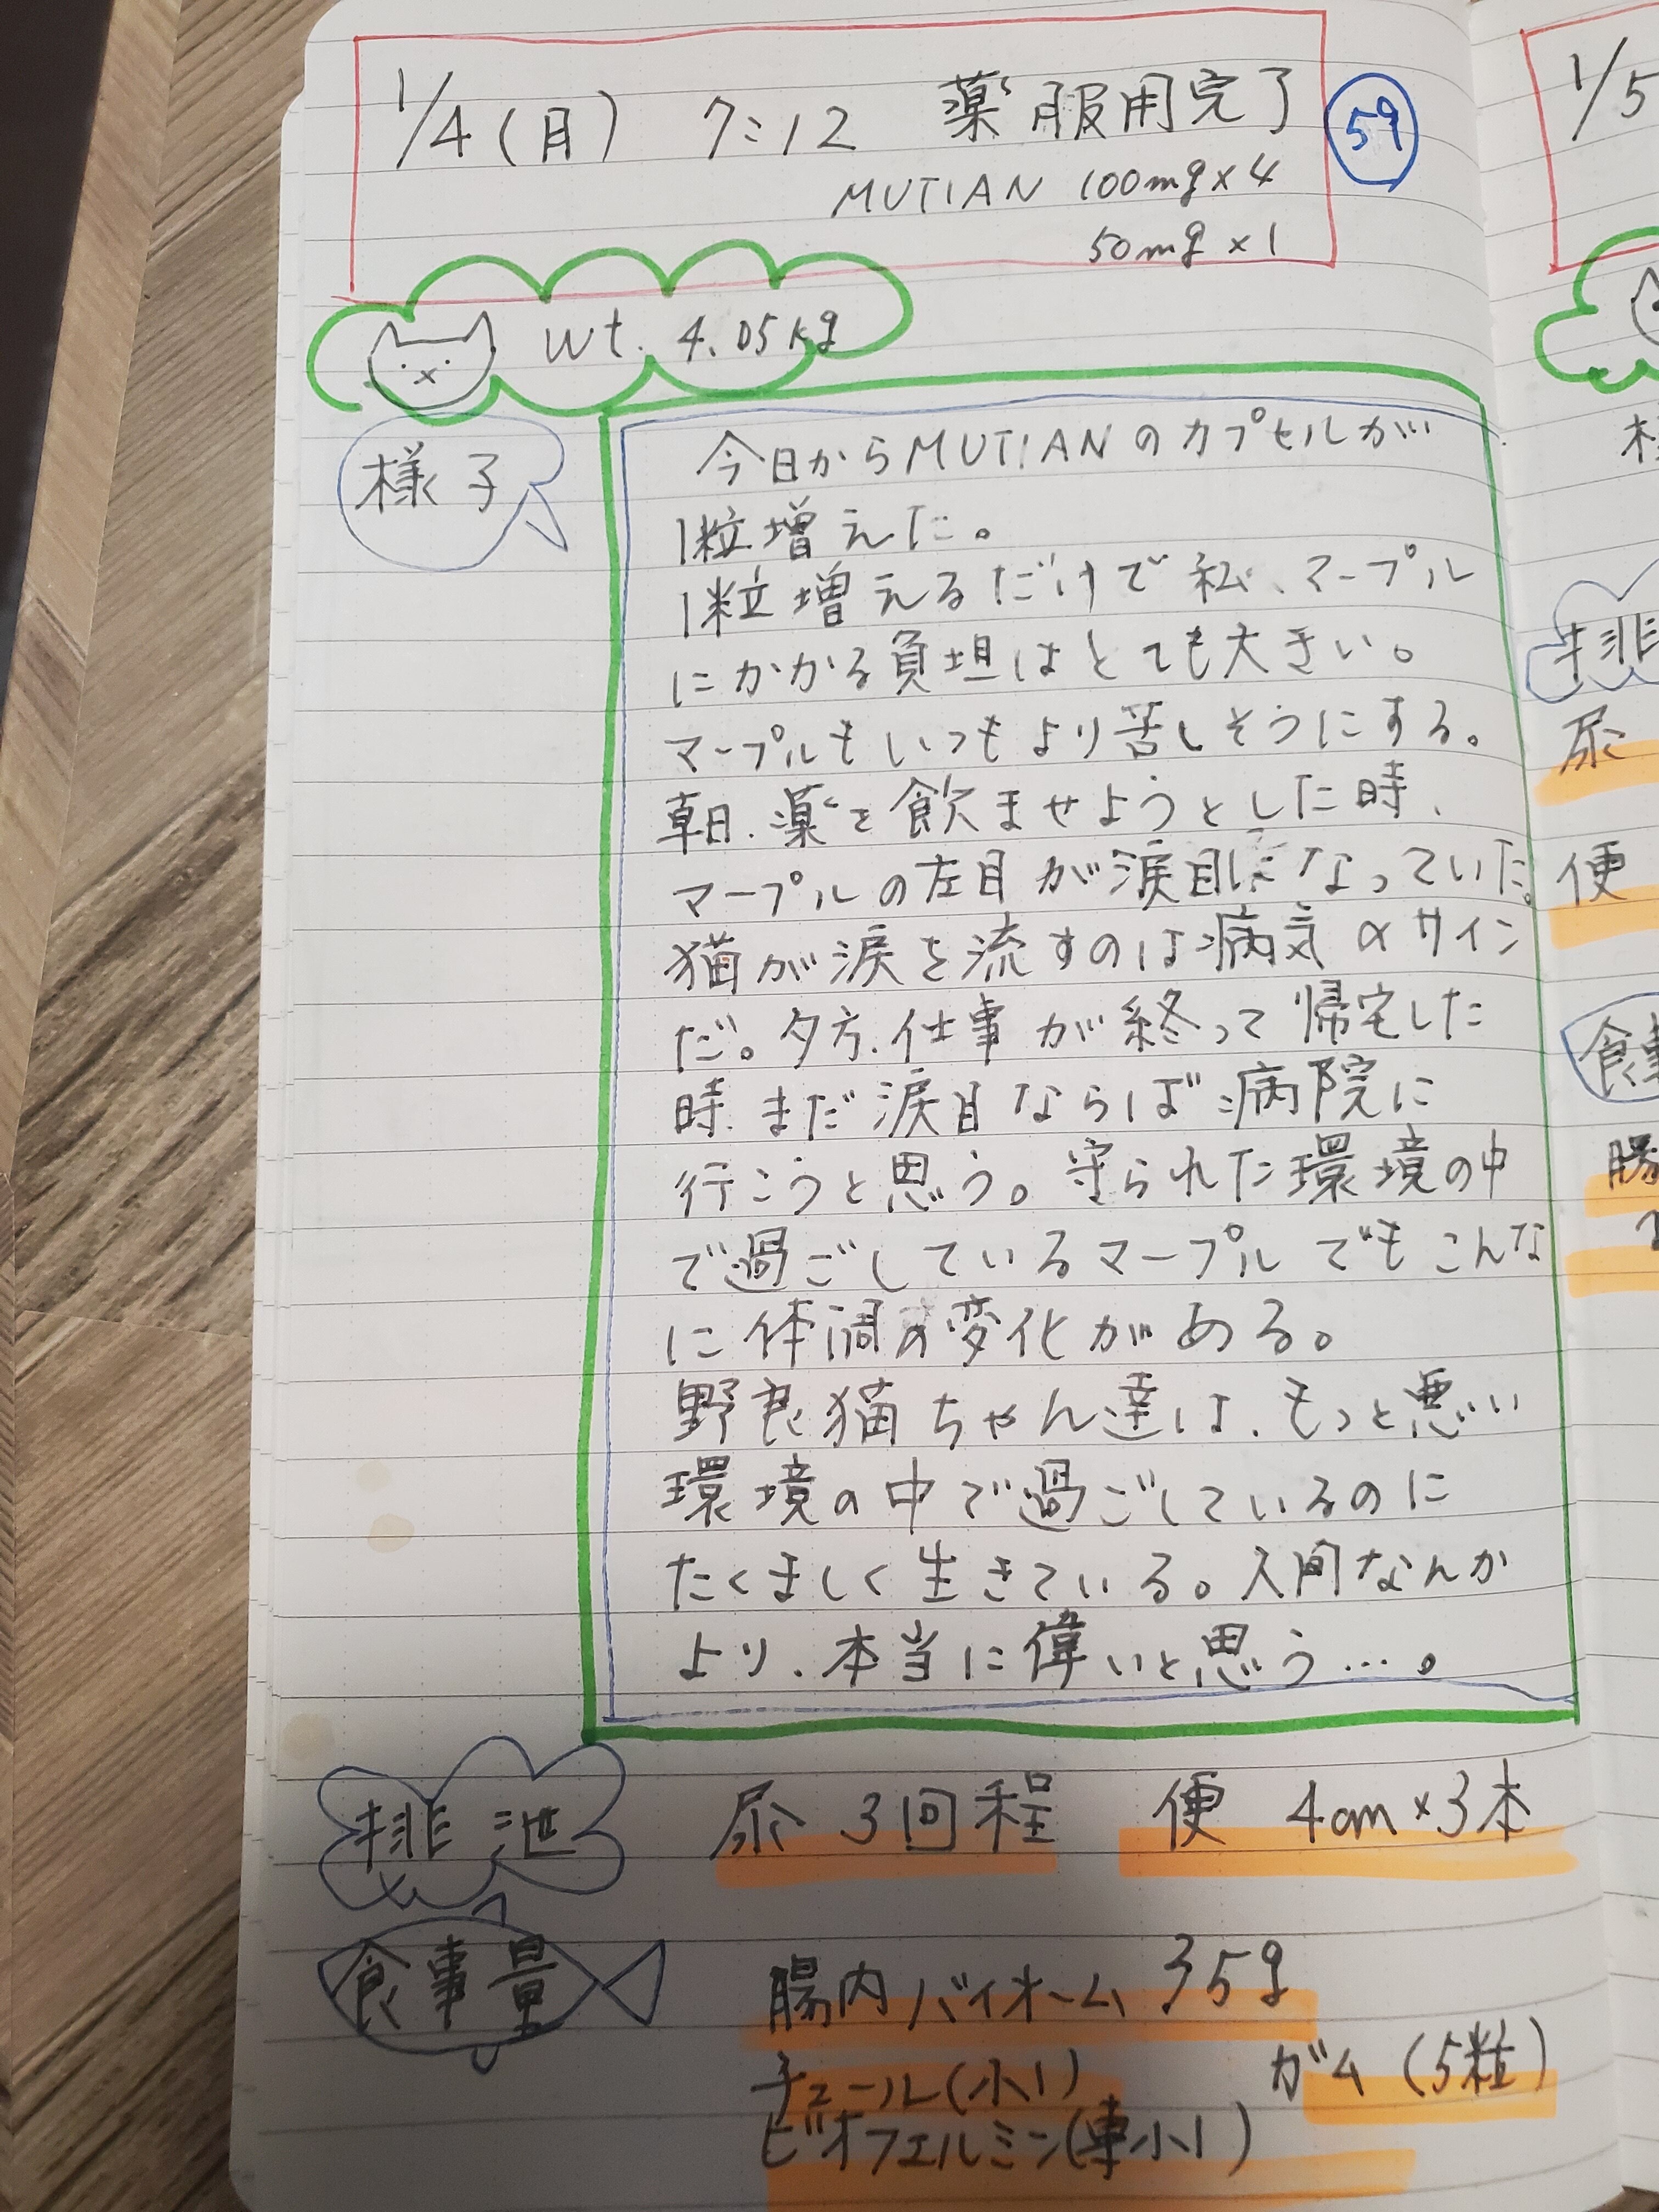 1/4(月) 7:12 薬服用完了 59
MUTIAN 100mg×4
50mg×1
wt. 4.05kg
様子
今日からMUTIANのカプセルが
1粒増えた。
1粒増えるだけで私、マープル
にかかる負担はとても大きい。
マープルもいつもより苦しそうにする。
朝、薬を飲ませようとした時、
マープルの左目が涙目になっていた。
猫が涙を流すのは病気のサイン
だ。夕方、仕事が終って帰宅した
時、まだ涙目ならば病院に
行こうと思う。守られた環境の中
で過ごしているマープルでもこんな
に体調の変化がある。
野良猫ちゃん達は、もっと悪い
環境の中で過ごしているのに
たくましく生きている。人間なんか
より、本当に偉いと思う…。
排泄 尿 3回程 便 4cm×3本
食事量 腸内バイオーム 35g
チュール(小1) ガム(5粒)
ビオフェルミン(小1)
1/5
排
尿
便
食事
腸